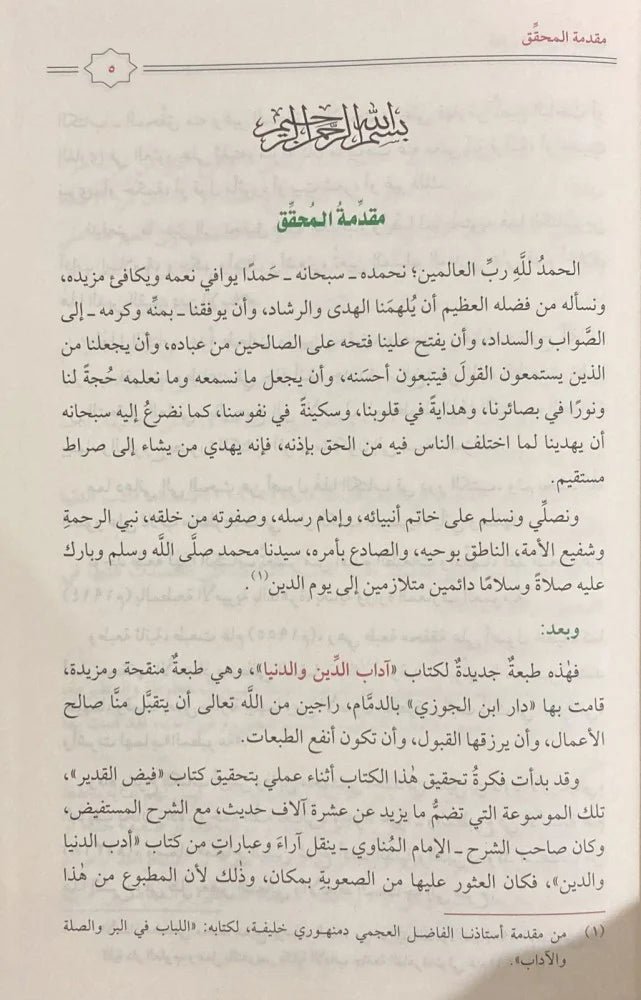 مقدمة المحقِّق
٥
بسم الله الرحمن الرحيم
مقدِّمةُ المُحقِّق
الحمدُ للَّهِ ربِّ العالمين؛ نحمده ـ سبحانه ـ حَمدًا يوافي نعمه ويكافئ مزيده،
ونسأله من فضله العظيم أن يُلهمَنا الهدى والرشاد، وأن يوفقنا ـ بمنِّه وكرمه ـ إلى
الصَّواب والسداد، وأن يفتح علينا فتحه على الصالحين من عباده، وأن يجعلنا من
الذين يستمعون القولَ فيتبعون أحسَنه، وأن يجعل ما نسمعه وما نعلمه حُجةً لنا
ونورًا في بصائرنا، وهدايةً في قلوبنا، وسكينةً في نفوسنا، كما نضرعُ إليه سبحانه
أن يهدينا لما اختلف الناس فيه من الحق بإذنه، فإنه يهدي من يشاء إلى صراط
مستقيم.
ونصلِّي ونسلم على خاتم أنبيائه، وإمام رسله، وصفوته من خلقه، نبي الرحمةِ
وشفيع الأمة، الناطق بوحيه، والصادع بأمره، سيدنا محمد صلَّى اللَّه وسلم وبارك
عليه صلاةً وسلامًا دائمين متلازمين إلى يوم الدين(١).
وبعد:
فهٰذه طبعةٌ جديدةٌ لكتاب «آداب الدِّين والدنيا»، وهي طبعةٌ منقحة ومزيدة،
قامت بها «دار ابن الجوزي» بالدمَّام، راجين من اللَّه تعالى أن يتقبَّل منَّا صالح
الأعمال، وأن يرزقها القبول، وأن تكون أنفع الطبعات.
وقد بدأت فكرةُ تحقيق هٰذا الكتاب أثناء عملي بتحقيق كتاب «فيض القدير»،
تلك الموسوعة التي تضمُّ ما يزيد عن عشرة آلاف حديث، مع الشرح المستفيض،
وكان صاحب الشرح ـ الإمام المُناوي ـ ينقل آراءَ وعباراتٍ من كتاب «أدب الدنيا
والدين»، فكان العثور عليها من الصعوبةِ بمكان، وذٰلك لأن المطبوع من هٰذا
(١) من مقدمة أستاذنا الفاضل العجمي دمنهوري خليفة، لكتابه: «اللباب في البر والصلة
والآداب».